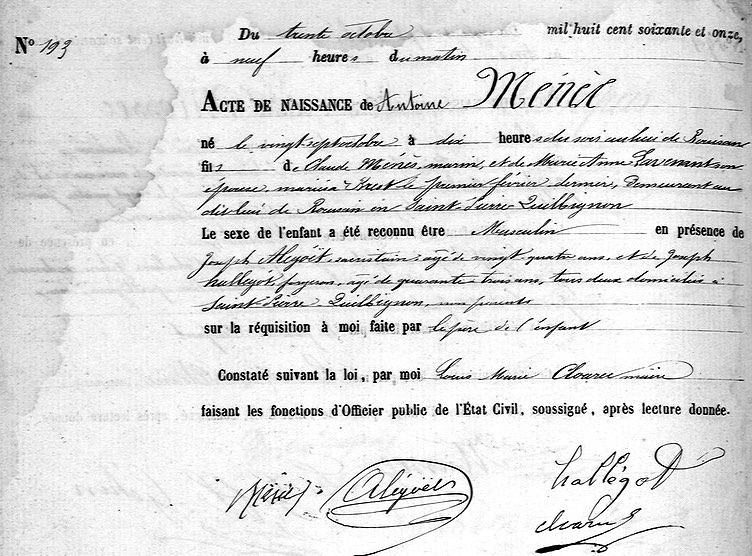 Nº 193
Du trente octobre mil huit cent soixante et onze,
à neuf heures du matin
ACTE DE NAISSANCE de Antoine Ménès
né le vingt sept octobre à dix heures du soir au lieu de
fils de Claude Ménès, marin, et de Marie Anne Lavenant son
épouse, mariés à Brest le premier février dernier, demeurant au
dit lieu de en Saint Pierre Quilbignon
Le sexe de l'enfant a été reconnu être Masculin en présence de
Joseph Alégoët, sacristain âgé de vingt quatre ans, et de Joseph
hallégot, forgeron, âgé de quarante trois ans, tous deux domiciliés à
Saint Pierre Quilbignon, non parents
sur la réquisition à moi faite par le père de l'enfant
Constaté suivant la loi, par moi Louis Marie maire
faisant les fonctions d'Officier public de l'État Civil, soussigné, après lecture donnée.
Ménès Alégoët hallégot